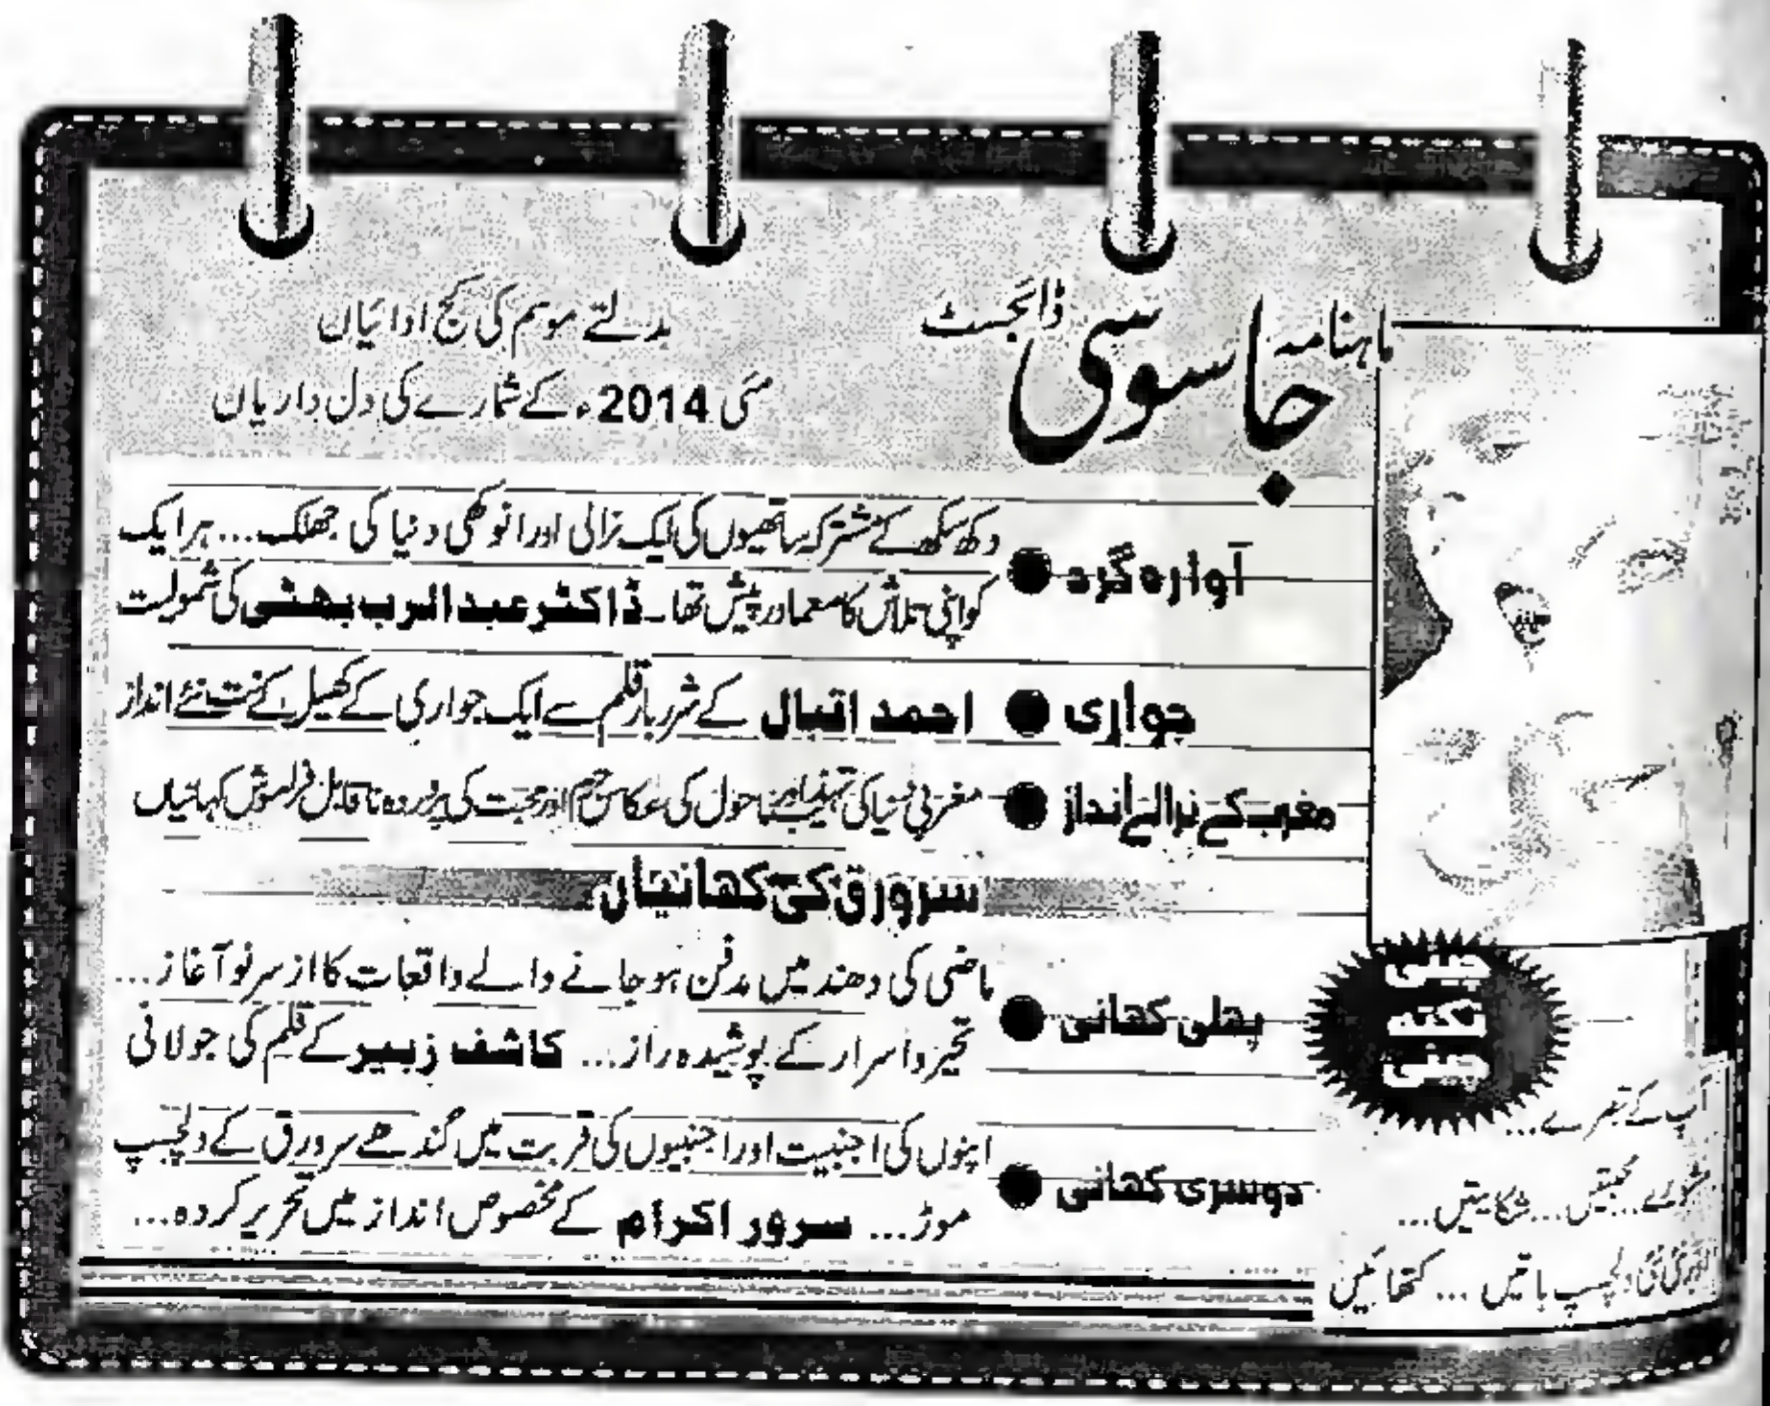 ماہنامہ جاسوسی ڈائجسٹ
بدلتے موسم کی کج ادائیاں
مئی 2014ء کے شمارے کی دل داریاں
آوارہ گرد ● دکھ سکھ کے مشترکہ ساتھیوں کی ایک نرالی اور انوکھی دنیا کی جھلک... ہر ایک
کو اپنی تلاش کا معما درپیش تھا۔ ڈاکٹر عبدالرب بھٹی کی شمولیت
جواری ● احمد اقبال کے شرر بار قلم سے ایک جواری کے کھیل کے نت نئے انداز
مغرب کے نرالے انداز ● مغربی دنیا کی تہذیب و ماحول کی عکاس جرم اور محبت کی ناقابل فراموش کہانیاں
سرورق کی کہانیاں
پہلی کہانی ● ماضی کی دھند میں مدفن ہو جانے والے واقعات کا از سرنو آغاز...
تحیر و اسرار کے پوشیدہ راز... کاشف زبیر کے قلم کی جولانی
دوسری کہانی ● اپنوں کی اجنبیت اور اجنبیوں کی قربت میں گندھے سرورق کے دلچسپ
موڑ... سرور اکرام کے مخصوص انداز میں تحریر کردہ...
چینی
نکتہ
چینی
آپ کے تبصرے...
مشورے... محبتیں... شکایتیں...
دلچسپ باتیں... کتھائیں